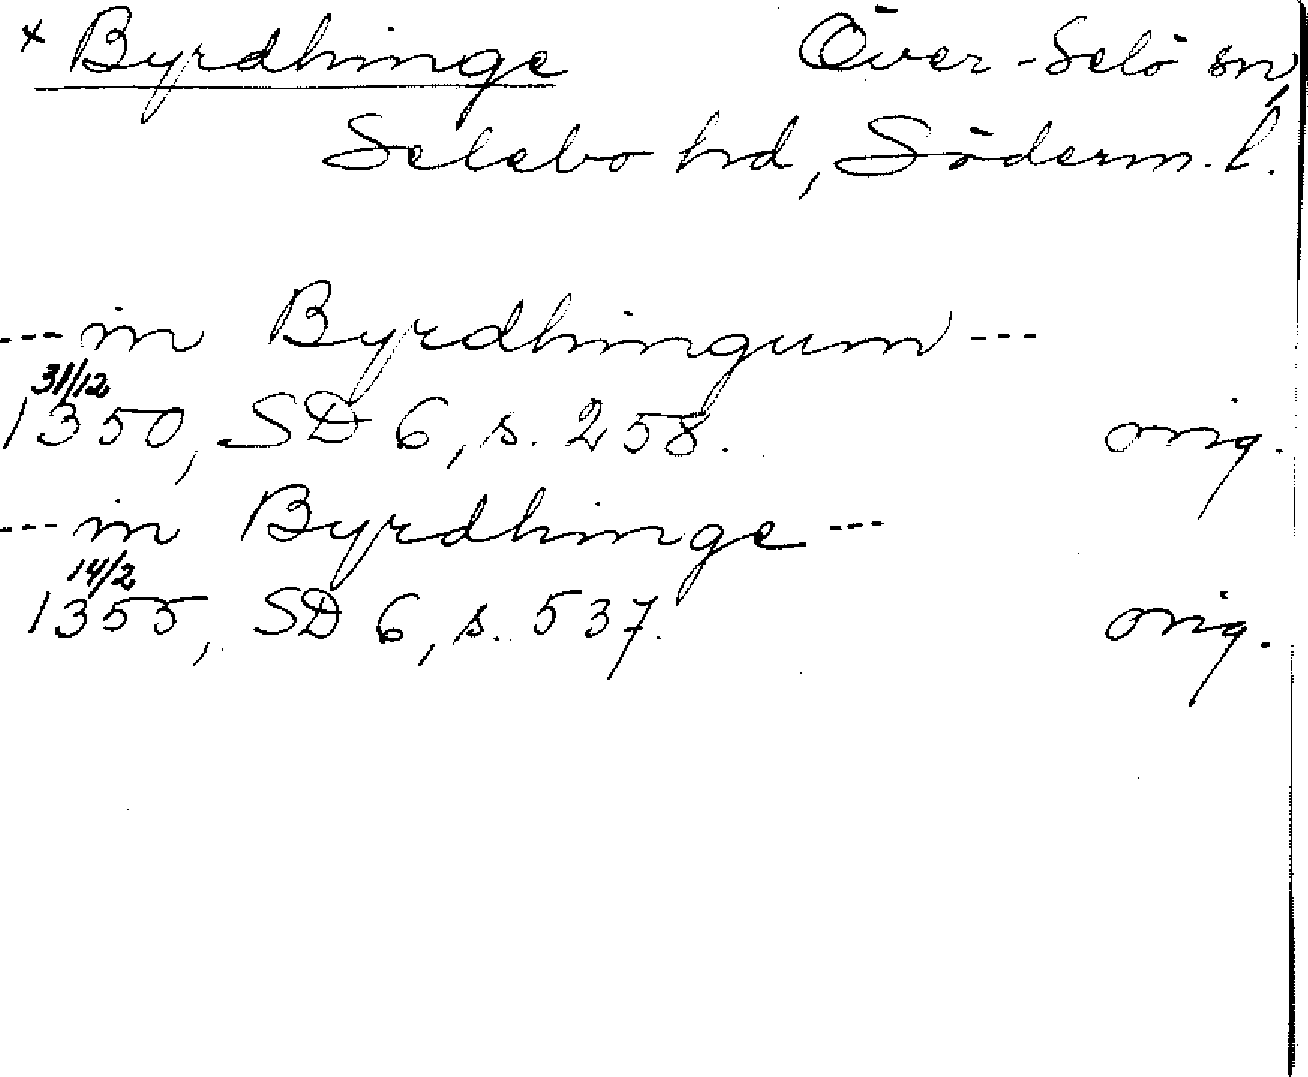 × Byrdhinge Över-Selö sn,
Selebo hd, Söderm. l.
--- in Byrdhingum ---
31/12
1350, SD 6, s. 258. orig.
--- in Byrdhinge ---
14/2
1355, SD 6, s. 537. orig.